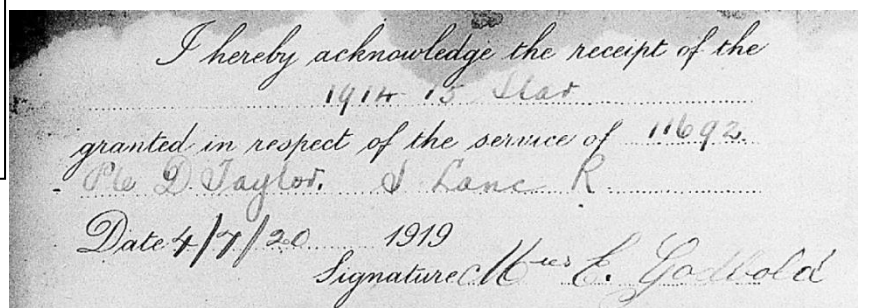 I hereby acknowledge the receipt of the
1914 15 Star
granted in respect of the service of 11692
Pte D Taylor. S Lanc R
Date 4/7/20 1919
Signature Mrs E. Godbold